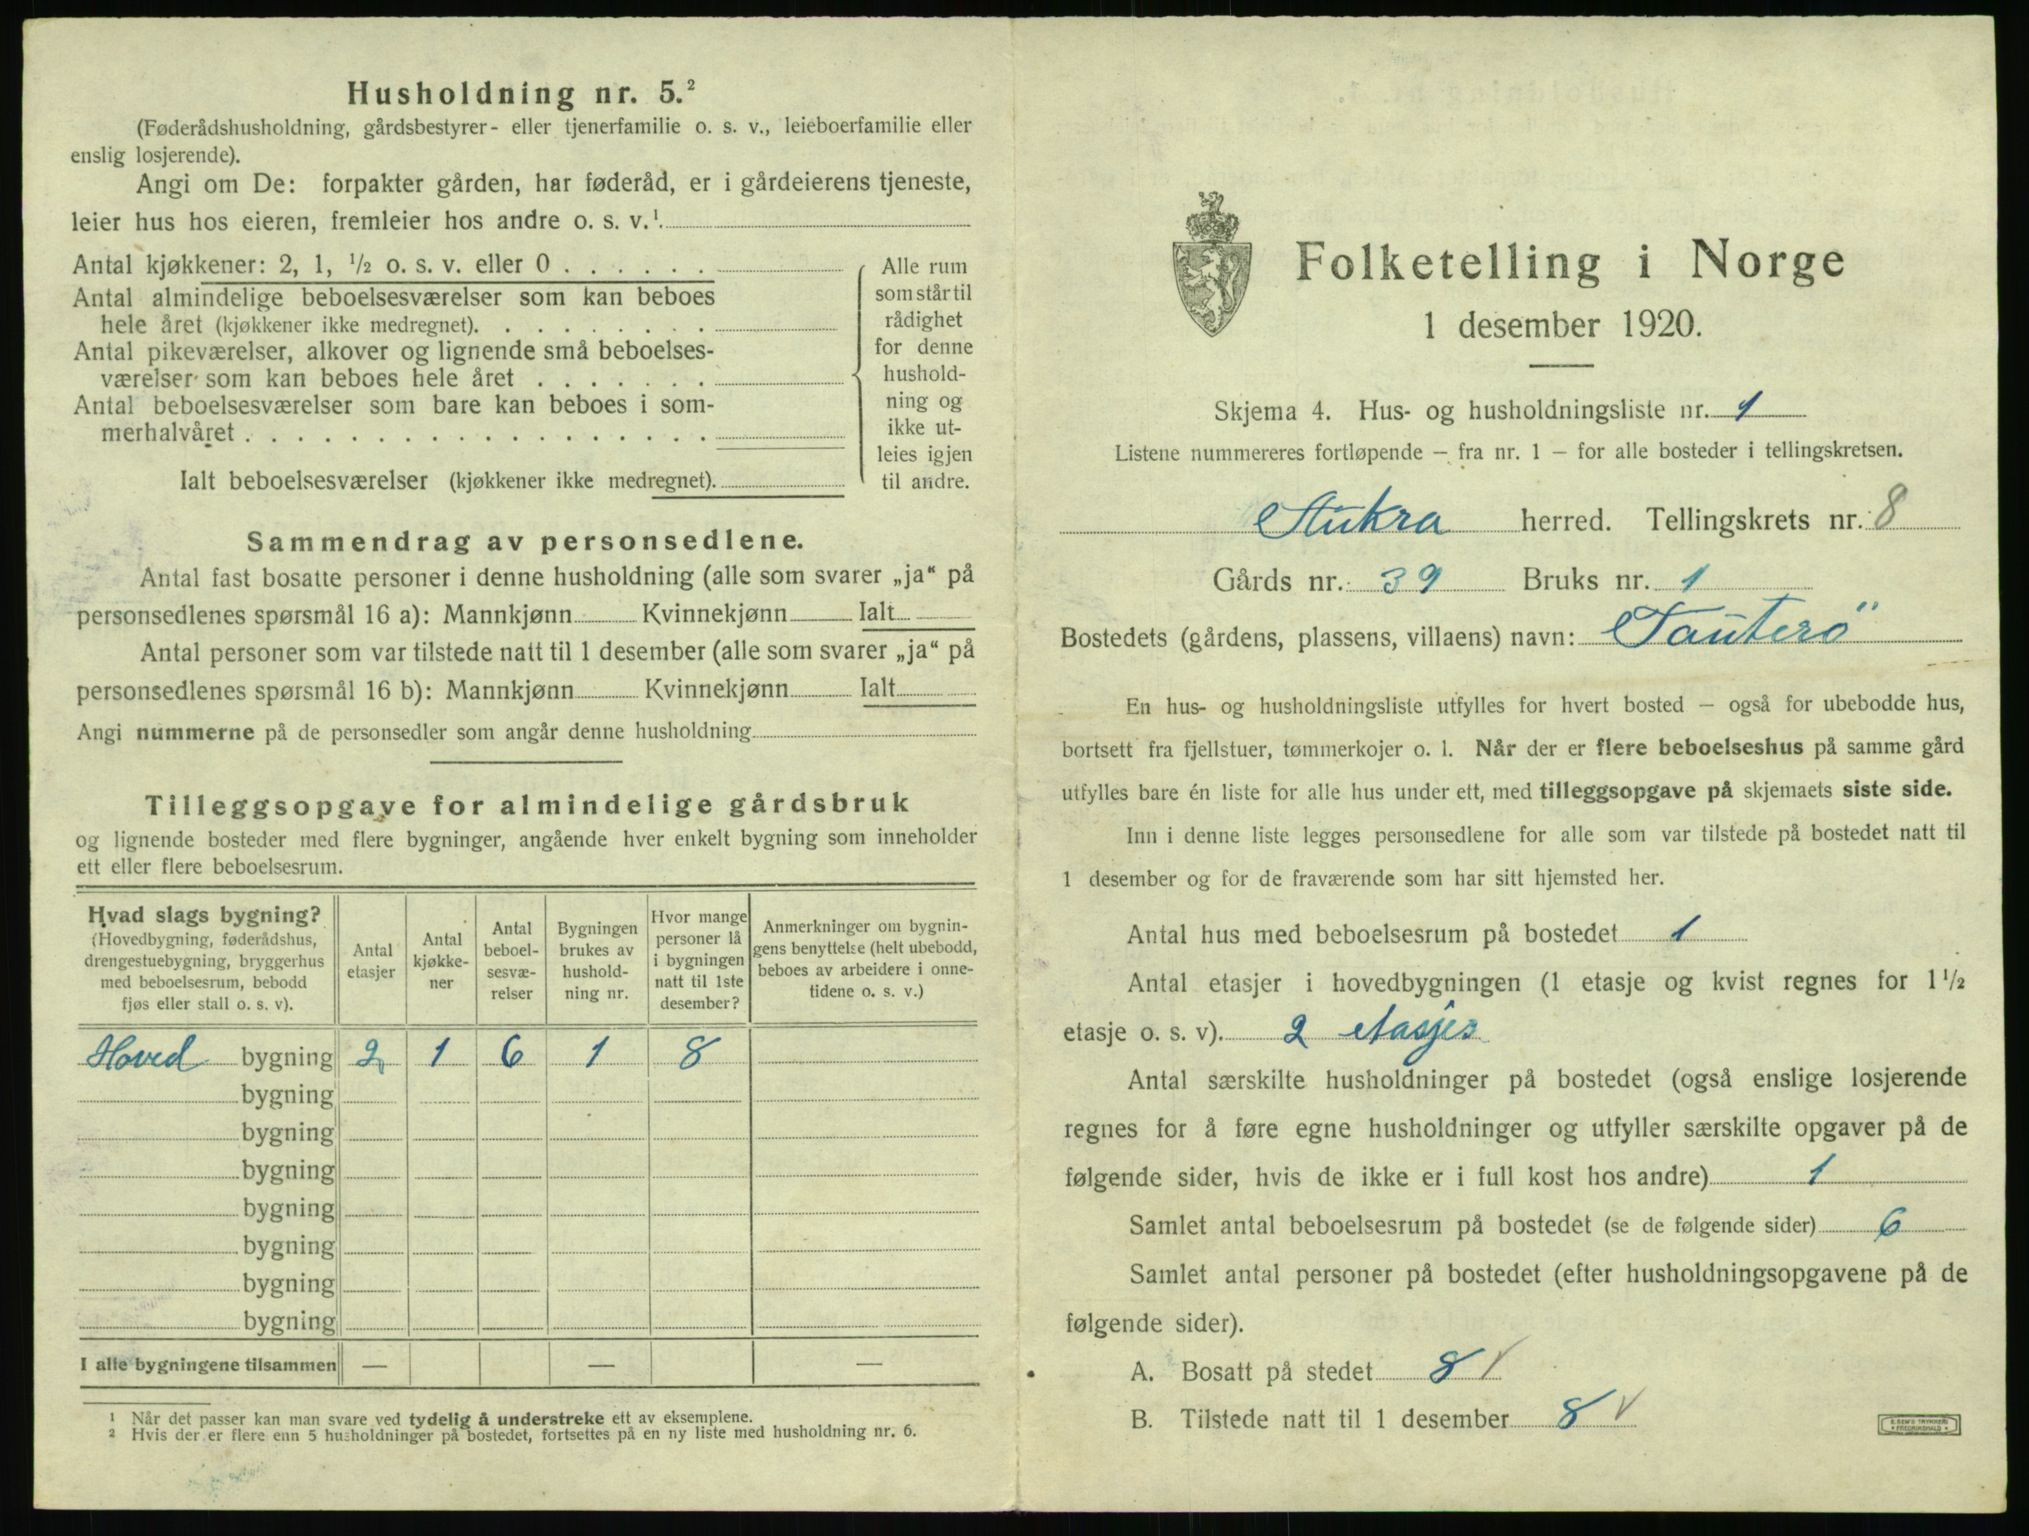 Husholdning nr. 5.²
(Føderådshusholdning, gårdsbestyrer- eller tjenerfamilie o. s. v., leieboerfamilie eller
enslig losjerende).
Angi om De: forpakter gården, har føderåd, er i gårdeierens tjeneste,
leier hus hos eieren, fremleier hos andre o. s. v.¹
Antal kjøkkener: 2, 1, ½ o. s. v. eller 0 . . . . . .
Antal almindelige beboelsesværelser som kan beboes
hele året (kjøkkener ikke medregnet). . . . . . . . .
Antal pikeværelser, alkover og lignende små beboelses-
værelser som kan beboes hele året . . . . . . .
Antal beboelsesværelser som bare kan beboes i som-
merhalvåret . . . . . . . . . . . . . . . . . .
Ialt beboelsesværelser (kjøkkener ikke medregnet).
Alle rum
som står til
rådighet
for denne
hushold-
ning og
ikke ut-
leies igjen
til andre.
Sammendrag av personsedlene.
Antal fast bosatte personer i denne husholdning (alle som svarer „ja“ på
personsedlenes spørsmål 16 a): Mannkjønn Kvinnekjønn Ialt
Antal personer som var tilstede natt til 1 desember (alle som svarer „ja“ på
personsedlenes spørsmål 16 b): Mannkjønn Kvinnekjønn Ialt
Angi nummerne på de personsedler som angår denne husholdning
Tilleggsopgave for almindelige gårdsbruk
og lignende bosteder med flere bygninger, angående hver enkelt bygning som inneholder
ett eller flere beboelsesrum.
Hvad slags bygning?
(Hovedbygning, føderådshus,
drengestuebygning, bryggerhus
med beboelsesrum, bebodd
fjøs eller stall o. s. v).
Antal
etasjer
Antal
kjøkke-
ner
Antal
beboel-
sesvæ-
relser
Bygningen
brukes av
hushold-
ning nr.
Hvor mange
personer lå
i bygningen
natt til 1ste
desember?
Anmerkninger om bygnin-
gens benyttelse (helt ubebodd,
beboes av arbeidere i onne-
tidene o. s. v.)
Hoved bygning 2 1 6 1 8
bygning
bygning
bygning
bygning
bygning
bygning
bygning
I alle bygningene tilsammen — — —
¹ Når det passer kan man svare ved tydelig å understreke ett av eksemplene.
² Hvis der er flere enn 5 husholdninger på bostedet, fortsettes på en ny liste med husholdning nr. 6.
Folketelling i Norge
1 desember 1920.
Skjema 4. Hus- og husholdningsliste nr. 1
Listene nummereres fortløpende – fra nr. 1 – for alle bosteder i tellingskretsen.
Aukra herred. Tellingskrets nr. 8
Gårds nr. 39 Bruks nr. 1
Bostedets (gårdens, plassens, villaens) navn: Tauterö
En hus- og husholdningsliste utfylles for hvert bosted – også for ubebodde hus,
bortsett fra fjellstuer, tømmerkojer o. l. Når der er flere beboelseshus på samme gård
utfylles bare én liste for alle hus under ett, med tilleggsopgave på skjemaets siste side.
Inn i denne liste legges personsedlene for alle som var tilstede på bostedet natt til
1 desember og for de fraværende som har sitt hjemsted her.
Antal hus med beboelsesrum på bostedet 1
Antal etasjer i hovedbygningen (1 etasje og kvist regnes for 1½
etasje o. s. v). 2 etasjes
Antal særskilte husholdninger på bostedet (også enslige losjerende
regnes for å føre egne husholdninger og utfyller særskilte opgaver på de
følgende sider, hvis de ikke er i full kost hos andre) 1
Samlet antal beboelsesrum på bostedet (se de følgende sider) 6
Samlet antal personer på bostedet (efter husholdningsopgavene på de
følgende sider).
A. Bosatt på stedet 8 √
B. Tilstede natt til 1 desember 8 √